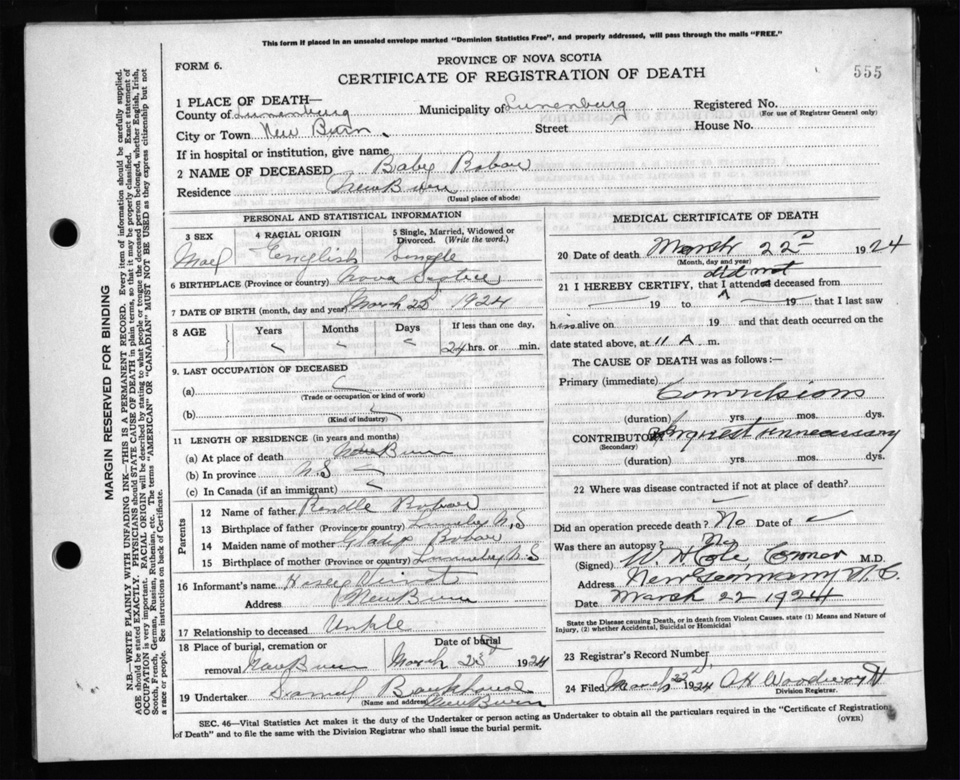 This form if placed in an unsealed envelope marked "Dominion Statistics Free", and properly addressed, will pass through the mails "FREE."
FORM 6.
PROVINCE OF NOVA SCOTIA
CERTIFICATE OF REGISTRATION OF DEATH
555
1 PLACE OF DEATH—
County of Lunenburg Municipality of Lunenburg Registered No.
(For use of Registrar General only)
City or Town New Burn Street House No.
If in hospital or institution, give name
2 NAME OF DECEASED Baby
Residence New Burn
(Usual place of abode)
PERSONAL AND STATISTICAL INFORMATION
3 SEX 4 RACIAL ORIGIN 5 Single, Married, Widowed or Divorced. (Write the word.)
English Single
6 BIRTHPLACE (Province or country) Nova Scotia
7 DATE OF BIRTH (month, day and year) March 1924
8 AGE Years Months Days If less than one day,
24 hrs. or min.
9. LAST OCCUPATION OF DECEASED
(a)
(Trade or occupation or kind of work)
(b)
(Kind of industry)
11 LENGTH OF RESIDENCE (in years and months)
(a) At place of death New Burn
(b) In province N S
(c) In Canada (if an immigrant)
Parents
12 Name of father
13 Birthplace of father (Province or country) N, S
14 Maiden name of mother
15 Birthplace of mother (Province or country) N S
16 Informant's name
Address New Burn
17 Relationship to deceased Unkle
18 Place of burial, cremation or removal New Burn Date of burial March 23 1924
19 Undertaker Samuel
(Name and address) New Burn
MEDICAL CERTIFICATE OF DEATH
20 Date of death March 22 1924
(Month, day and year)
did not
21 I HEREBY CERTIFY, that I attended deceased from
19 to 19 that I last saw
him alive on 19 and that death occurred on the
date stated above, at 11 A m.
The CAUSE OF DEATH was as follows:—
Primary (immediate) Convulsions
(duration) yrs. mos. dys.
CONTRIBUTORY Inquest unnecessary
(Secondary)
(duration) yrs. mos. dys.
22 Where was disease contracted if not at place of death?
Did an operation precede death? No Date of
Was there an autopsy? No
(Signed) W. N Cole, M.D.
Address New Germany N. S.
Date March 22 1924
State the Disease causing Death, or in death from Violent Causes, state (1) Means and Nature of Injury, (2) whether Accidental, Suicidal or Homicidal
23 Registrar's Record Number
24 Filed March 1924
Division Registrar.
SEC. 46—Vital Statistics Act makes it the duty of the Undertaker or person acting as Undertaker to obtain all the particulars required in the "Certificate of Registration
of Death" and to file the same with the Division Registrar who shall issue the burial permit.
(OVER)
MARGIN RESERVED FOR BINDING
N.B.—WRITE PLAINLY WITH UNFADING INK—THIS IS A PERMANENT RECORD. Every item of information should be carefully supplied.
AGE should be stated EXACTLY. PHYSICIANS should STATE CAUSE OF DEATH in plain terms, so that it may be properly classified. Exact statement of
OCCUPATION is very important. RACIAL ORIGIN will be described by stating to what people or tongue the deceased person belonged, whether English, Irish,
Scotch, French, German, Russian, Ruthenian, etc. The terms "AMERICAN" OR "CANADIAN" MUST NOT BE USED as they express citizenship but not
a race or people. See instructions on back of Certificate.